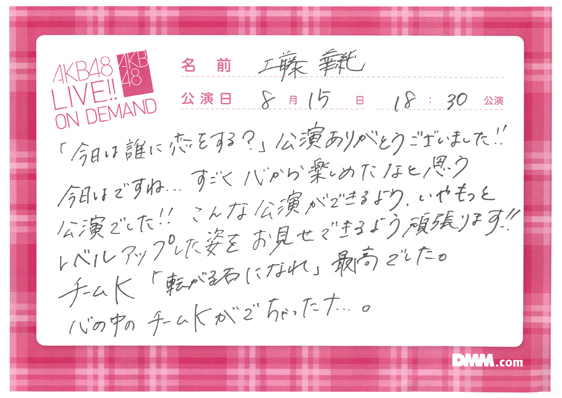 AKB48
LIVE!!
ON DEMAND
AKB
48
名前 工藤華純
公演日 8月15日 18:30公演
「今日は誰に恋をする？」公演ありがとうございました!!
今日はですね… すごく心から楽しめたなと思う
公演でした!! こんな公演ができるより、いやもっと
レベルアップした姿をお見せできるよう頑張ります!!
チームK「転がる石になれ」最高でした。
心の中のチームKがでちゃったナ…。
DMM.com